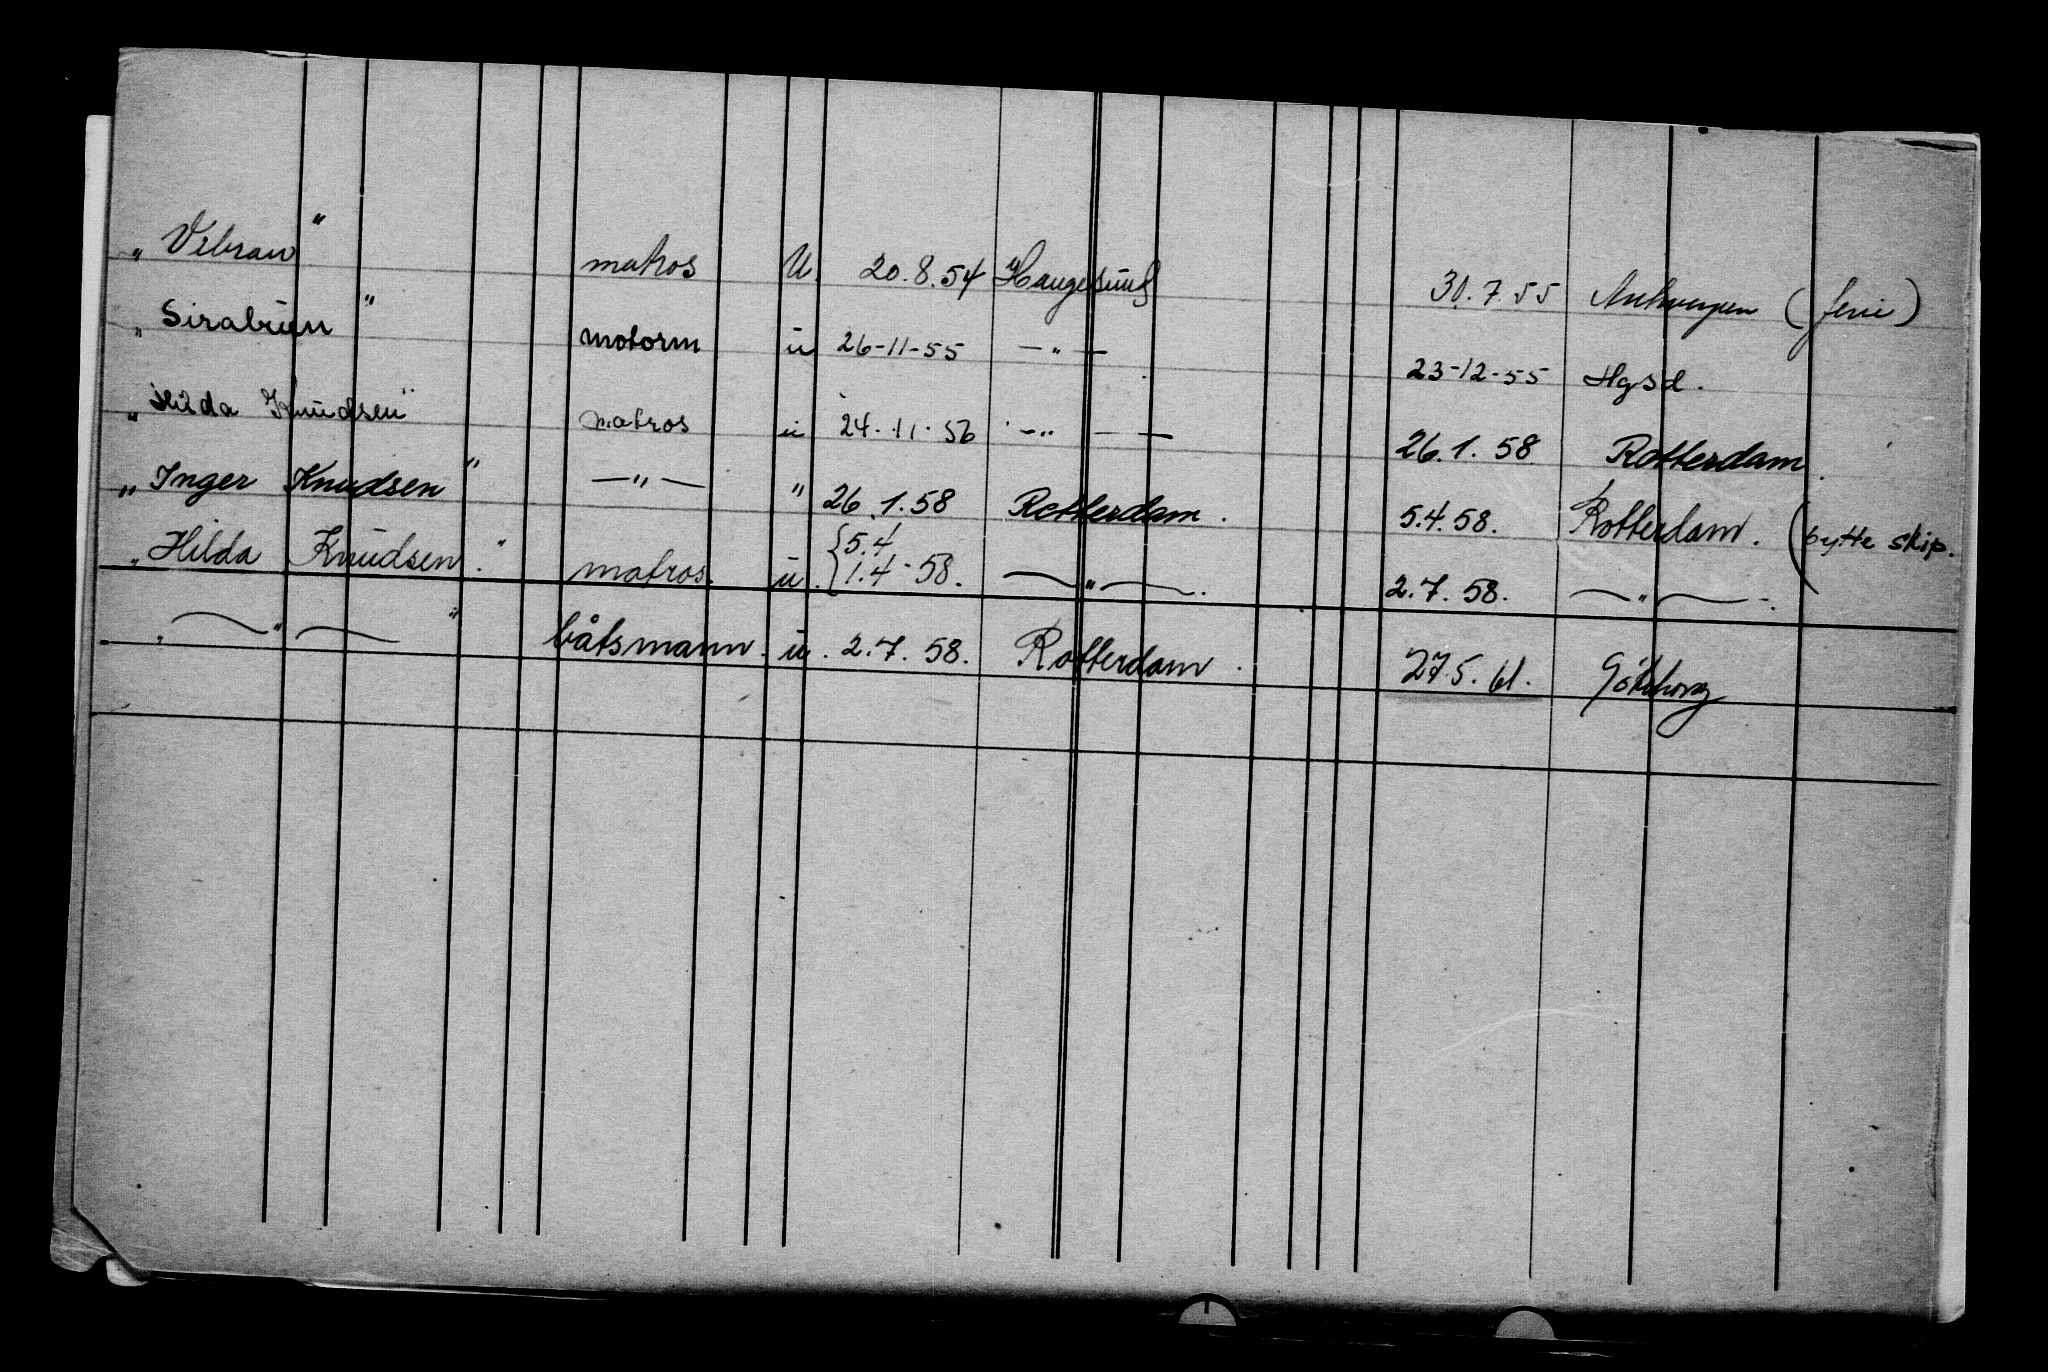 „ Vibran " matros U. 20.8.54 Haugesund 30.7.55 Antwerpen (ferie)
„ Sirabuen " motorm u 26-11-55 — " — 23-12-55 Hgsd.
„ Hilda Knudsen " matros u 24.11.56 — " — 26.1.58 Rotterdam.
„ Inger Knudsen " — " — " 26.1.58 Rotterdam. 5.4.58. Rotterdam. (bytte skip.
„ Hilda Knudsen. " matros. u. {5.4 1.4-58. — " —. 2.7.58. — " —.
„ — " — " båtsmann. u. 2.7.58. Rotterdam. 27.5.61. Göteborg